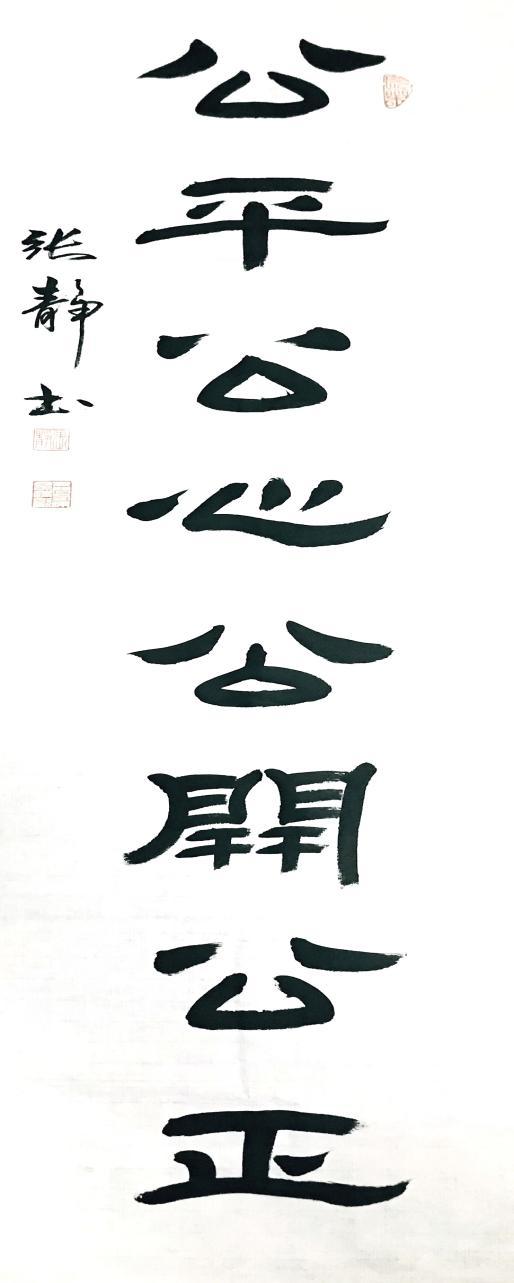 公平公心公開公正
张静书